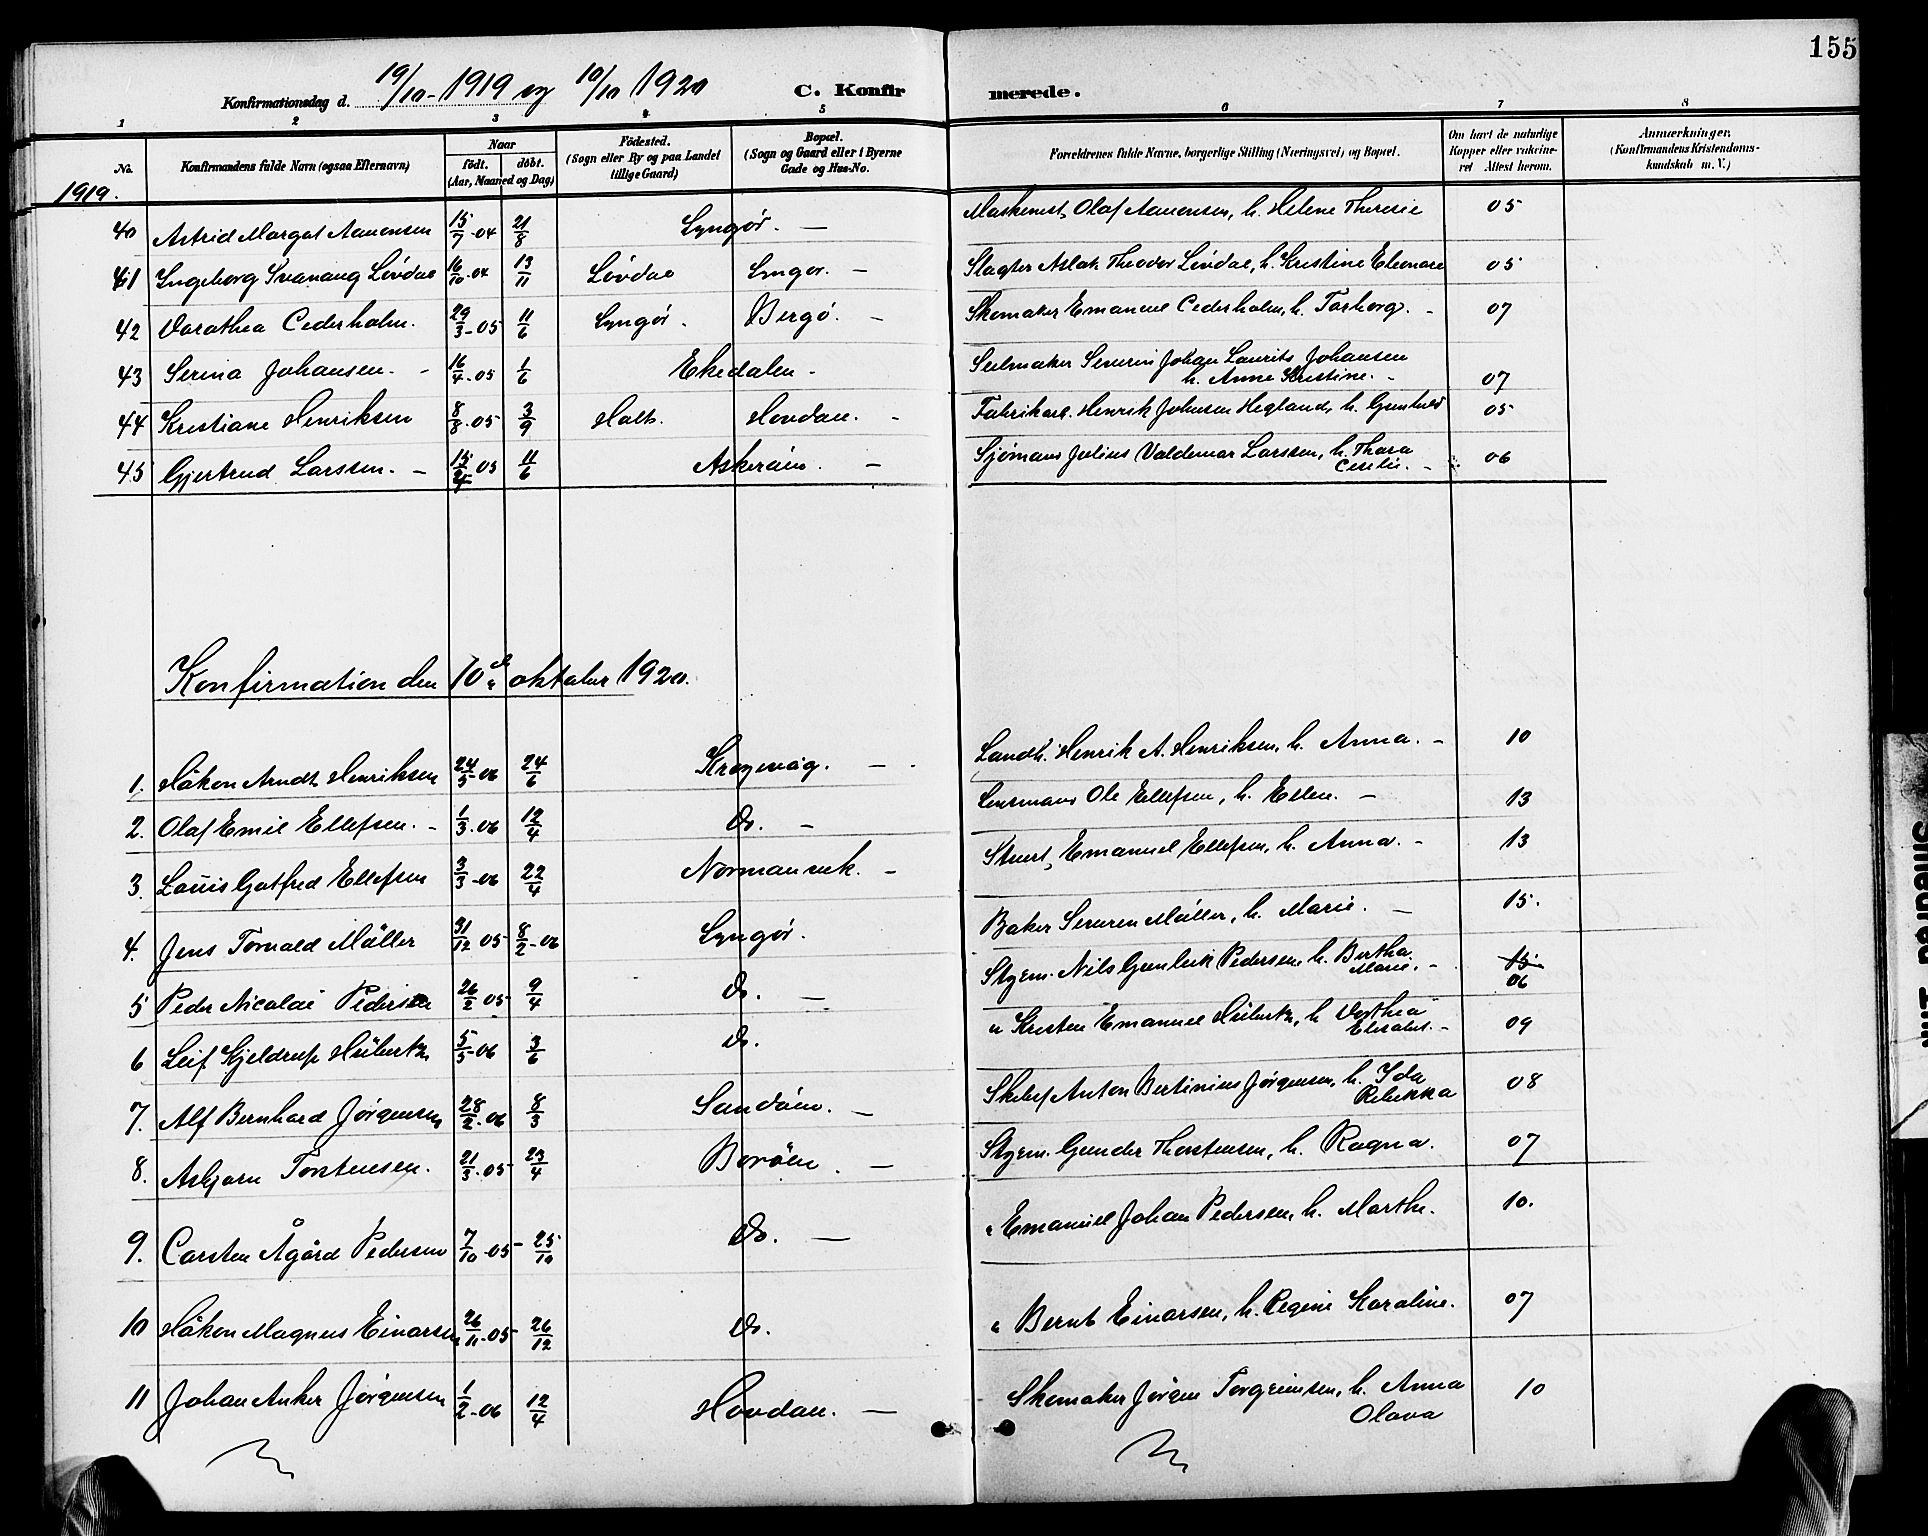 155
Konfirmationsdag d. 19/10 - 1919 og 10/10 1920 C. Konfirmerede.
1 2 3 4 5 6 7 8
No. Konfirmandens fulde Navn (ogsaa Efternavn) Naar født. døbt. (Aar, Maaned og Dag) Fødested. (Sogn eller By og paa Landet tillige Gaard) Bopæl. (Sogn og Gaard eller i Byerne Gade og Hus-No. Forældrenes fulde Navne, borgerlige Stilling (Næringsvei) og Bopæl. Om havt de naturlige Kopper eller vakcineret Attest herom. Anmærkninger. (Konfirmandens Kristendomskundskab m. V.)
1919.
40 Astrid Margot Aanonsen 15/7 - 04 21/8 Lyngør. — Maskinist Olaf Aanonsen, h. Helene Theresie 05
41 Ingeborg Svanaug Løvdal 16/10 - 04 13/11 Løvdal Lyngør. — Slagter Aslak Theodor Løvdal, h. Kristine Eleonore 05
42 Dorothea Cederholm. 29/3 - 05 11/6 Lyngør. Bergø. — Skomaker Emanuel Cederholm, h. Torborg. - 07
43 Serina Johansen. - 16/4 - 05 1/6 Ekedalen - Seilmaker Severin Johan Laurits Johansen
h. Anne Kristine. - 07
44 Kristiane Henriksen 8/8 - 05 3/9 Holt. Hovdan. - Fabrikarb. Henrik Johnsen Hegland, h. Gunhild 05
45 Gjertrud Larssen. - 15/4 05 11/6 Askerøen. — Sjømand Julius Valdemar Larssen, h. Thora
Cecilie. - 06
Konfirmation den 10de oktober 1920.
1. Håkon Arndt Henriksen 24/5 - 06 24/6 Krogevåg. — Landh. Henrik A. Henriksen, h. Anna. - 10
2. Olaf Emil Ellefsen. - 1/3 - 06 12/4 Do. — Lensmand Ole Ellefsen, h. Ellen. — 13
3. Louis Gotfred Ellefsen 3/3 - 06 22/4 Normanvik. - Stuert Emanuel Ellefsen, h. Anna. - 13
4. Jens Torvald Møller 31/12 05 8/2 - 06 Lyngør. Baker Severen Møller, h. Marie. — 15.
5 Peder Nicolai Pedersen 26/2 05 9/4 Do. — Styrm. Nils Gunleik Pedersen, h. Bertha
Marie. - 15 06
6 Leif Kjeldrup Hübertz 5/5 - 06 3/6 Do. " Kristen Emanuel Hübertz, h. Dorthea
Elisabet. - 09
7. Alf Bernhard Jørgensen 28/2 - 06 8/3 Sandøen. — Skibsf. Anton Bertinius Jørgensen, h. Ida
Rebekka 08
8. Asbjørn Torstensen. 21/3 - 05 23/4 Borøen. — Styrm. Gunder Thorstensen, h. Ragna. 07
9. Carsten Ågård Pedersen 7/10 - 05 - 25/10 Do. — " Emanuel Johan Pedersen, h. Marthe. 10.
10 Håkon Magnus Einarsen 26/11 - 05 - 26/12 Do. " Bernt Einarsen, h. Regine Karoline. 07
11 Johan Anker Jørgensen 1/2 - 06 12/4 Hovdan. — Skomaker Jørgen Torgrimsen, h. Anna
Olava 10